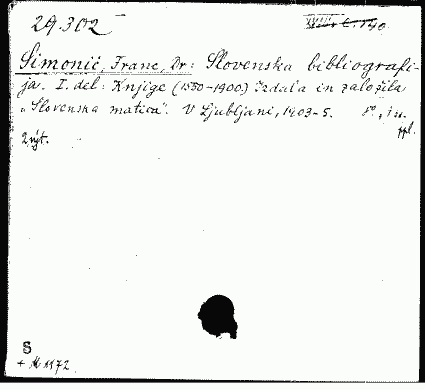 29.302 XVIII. C. 140.
Simonič, Franc, Dr: Slovenska bibliografi-
ja. I. del: Knjige (1550-1900.) Izdala in založila
„Slovenska matica". V Ljubljani, 1903-5. 8°, 1 u.
ppl.
2 výt.
S
+ M 1172